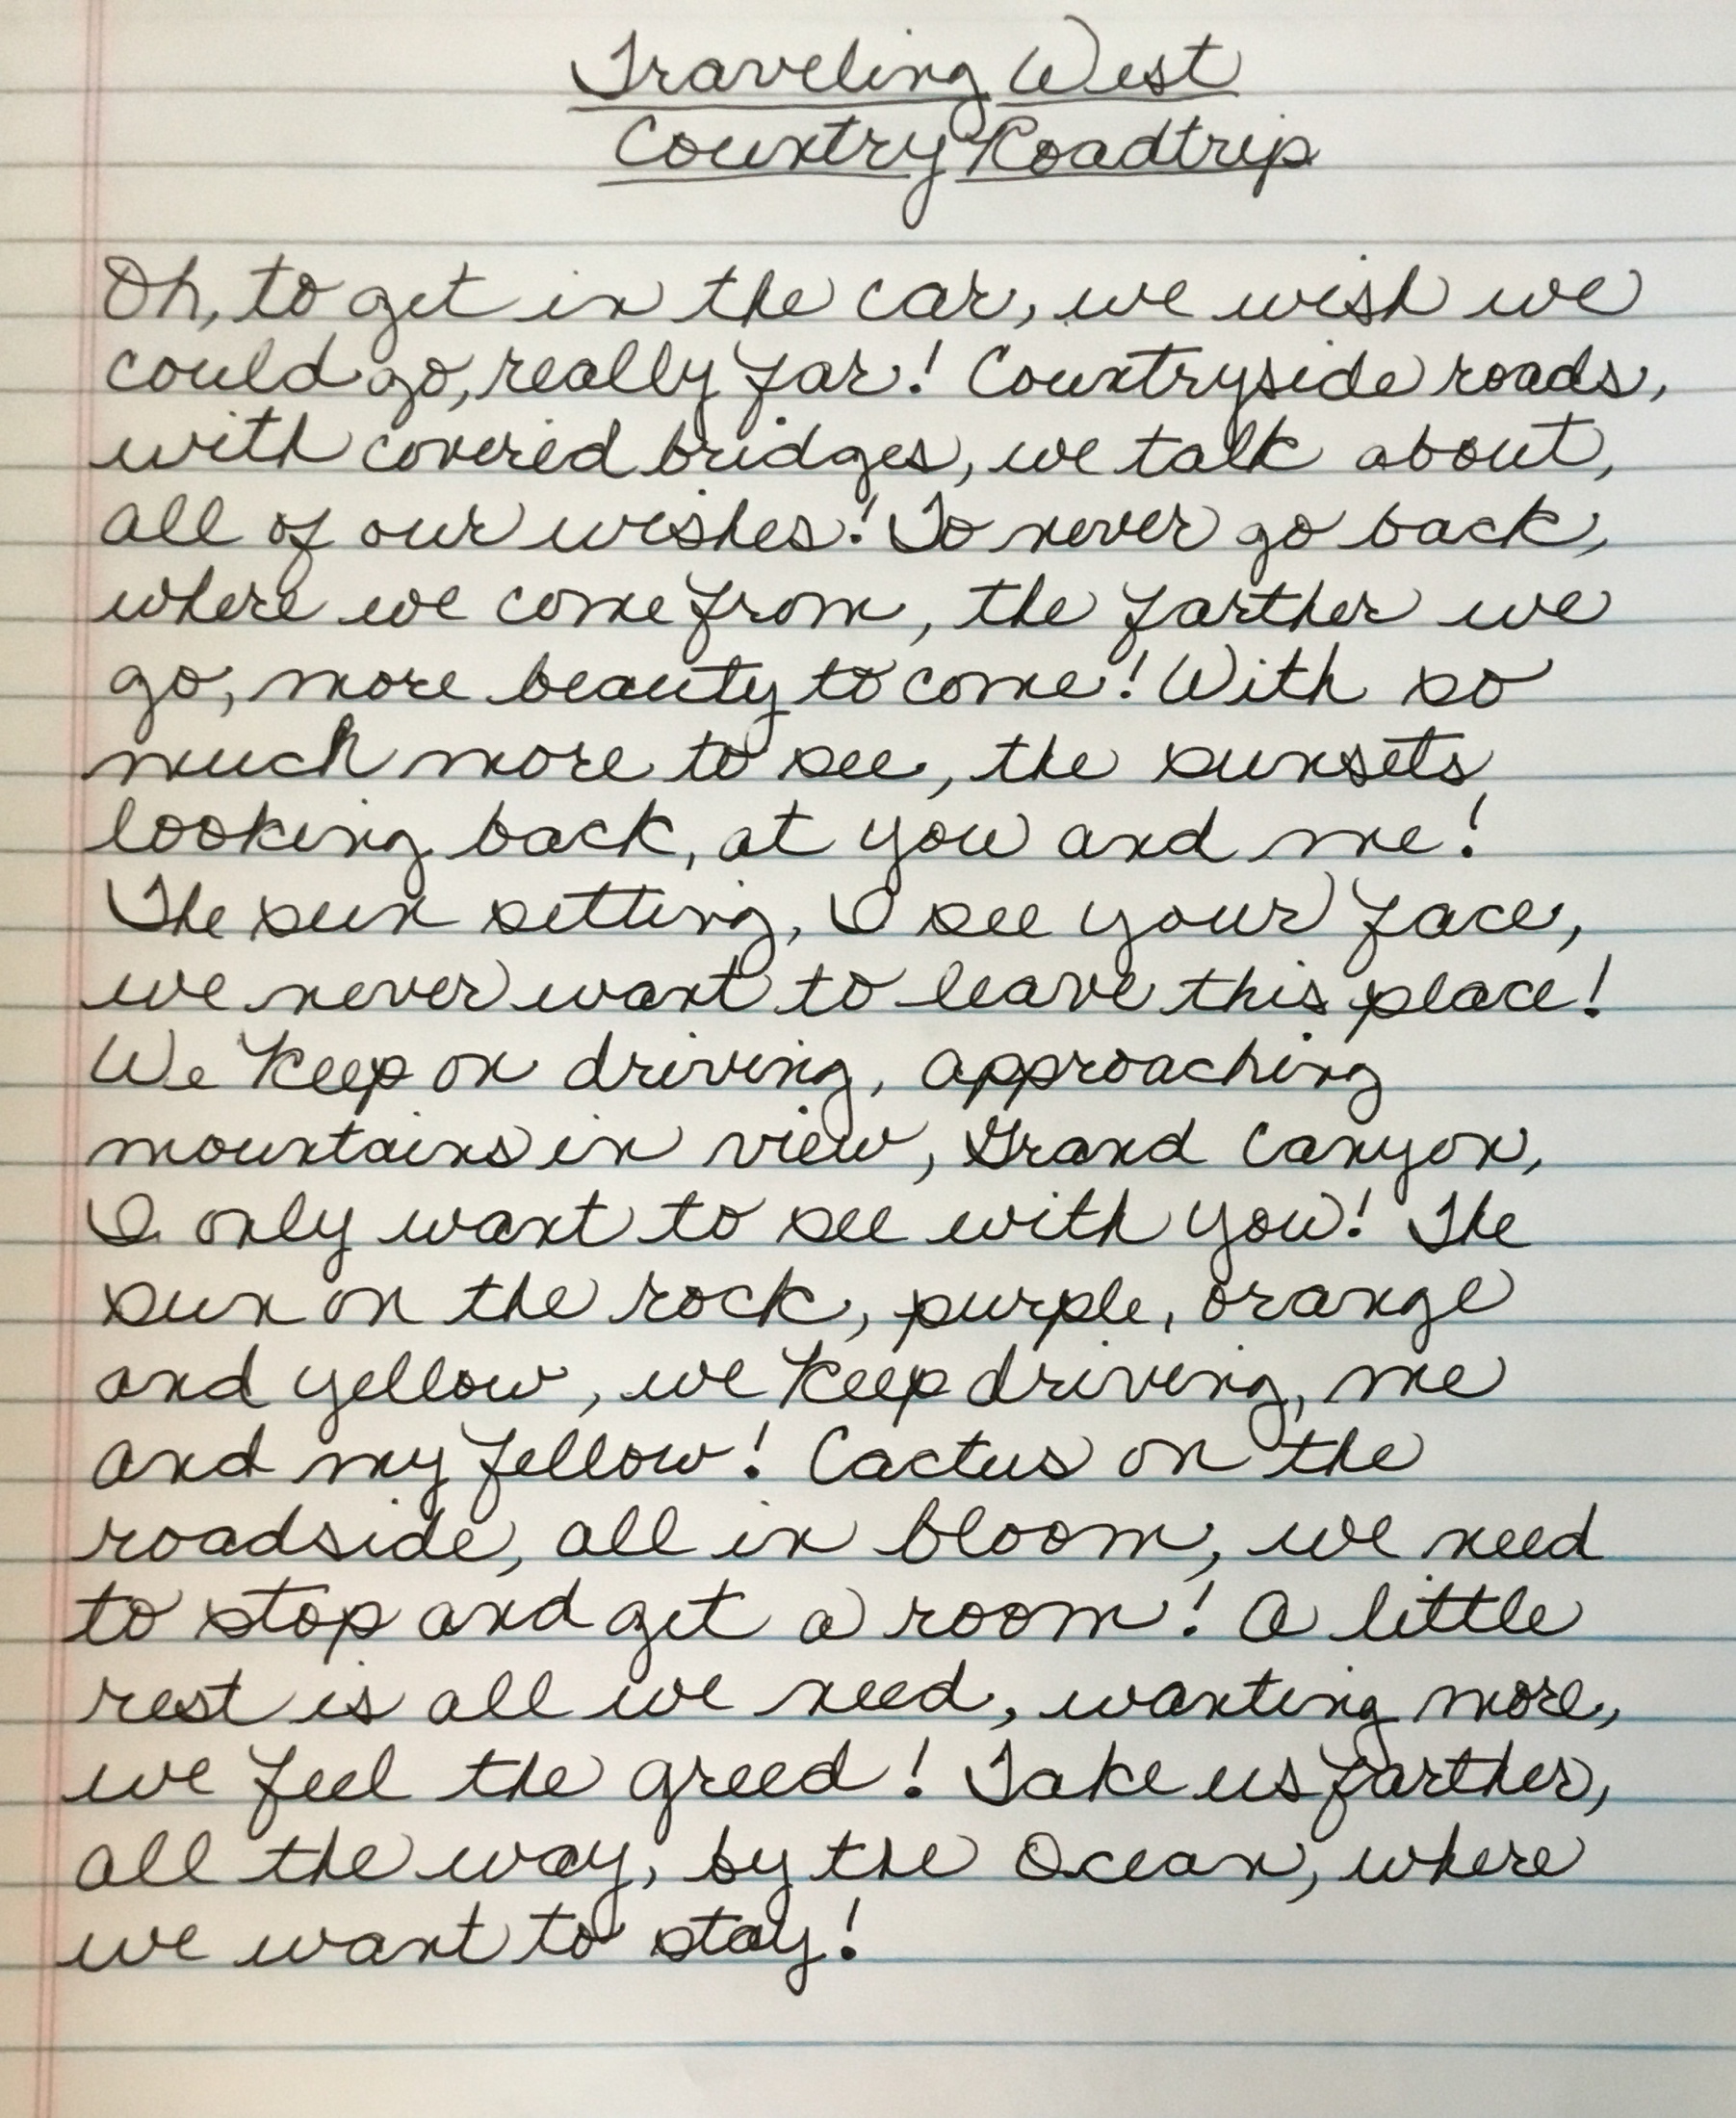 Traveling West
Country Roadtrip
Oh, to get in the car, we wish we
could go, really far! Countryside roads,
with covered bridges, we talk about,
all of our wishes! To never go back,
where we come from, the farther we
go, more beauty to come! With so
much more to see, the sunsets
looking back, at you and me!
The sun setting, I see your face,
we never want to leave this place!
We keep on driving, approaching
mountains in view, Grand Canyon,
I only want to see with you! The
sun on the rock, purple, orange
and yellow, we keep driving, me
and my fellow! Cactus on the
roadside, all in bloom, we need
to stop and get a room! A little
rest is all we need, wanting more,
we feel the greed! Take us farther,
all the way, by the Ocean, where
we want to stay!